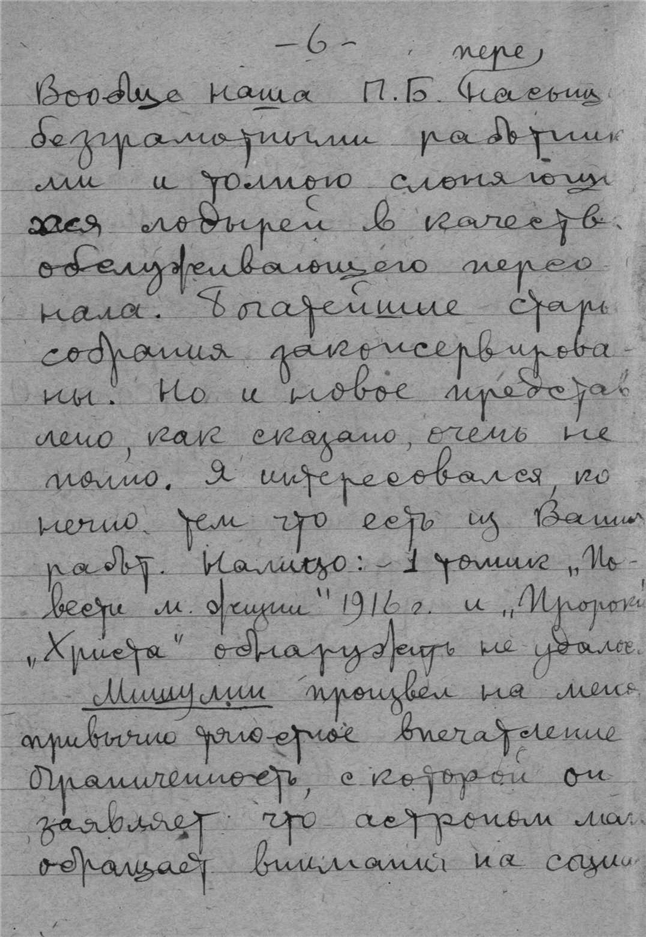 - 6 -
пере
Вообще наша П.Б. насыщ
безграмотными работник
ми и толпою слоняющи
хся лодырей в качеств
обслуживающего персо
нала. Богатейшие стары
собрания законсервирова-
ны. Но и новое представ
лено, как сказано, очень не
полно. Я интересовался, ко
нечно тем что есть из Ваших
работ. Налицо: - 1 томик „По-
вести м. жизни" 1916 г. и „Пророки
„Христа" обнаружить не удалос
Мишулин произвел на меня
привычно тягостное впечатление
Ограниченность, с которой он
заявляет что астроном мал
обращает внимания на социа